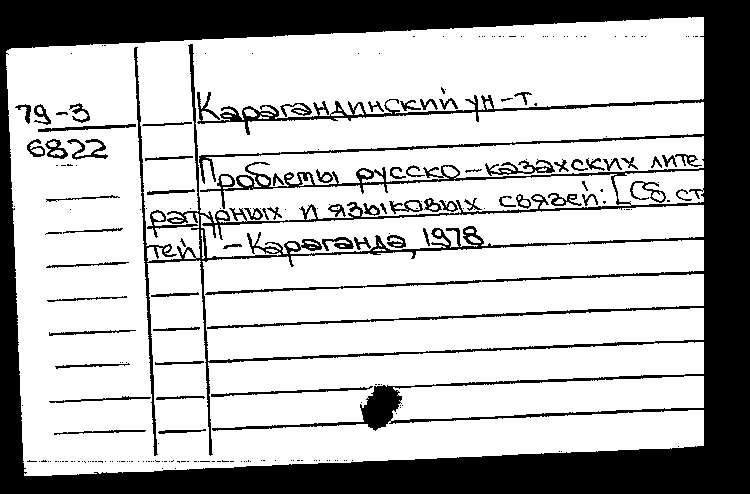 79-3
6822
Карагандинский ун-т.
Проблемы русско-казахских лите-
ратурных и языковых связей: [Сб. ста
тей]. - Караганда, 1978.